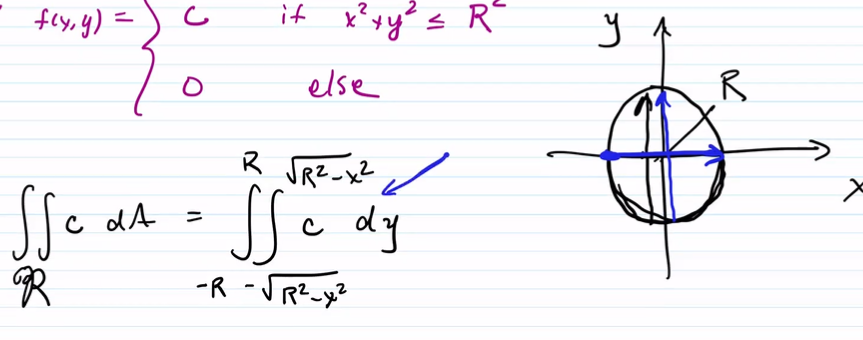 f(x,y) = { c if x² + y² ≤ R²
0 else
y
R
x
∬_R c dA = ∫_{-R}^{R} ∫_{-√(R²-x²)}^{√(R²-x²)} c dy